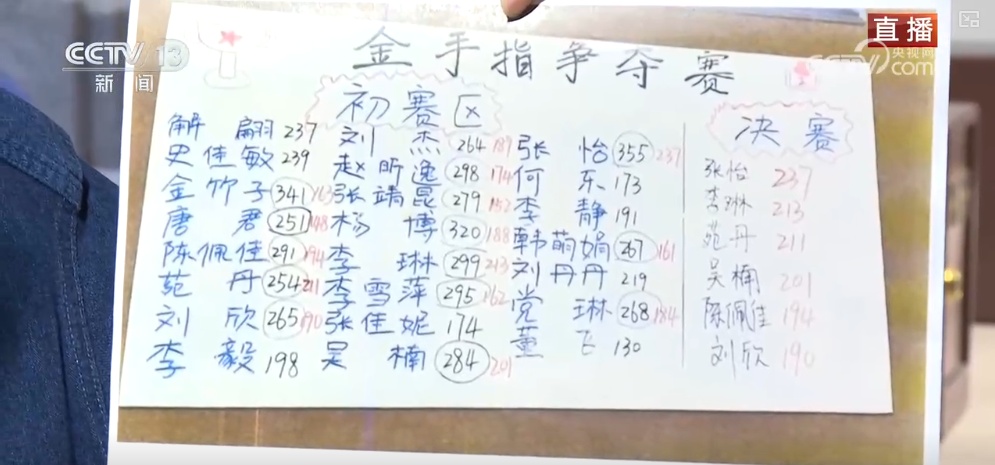 CCTV 13
新闻
直播
央视网
com
金手指争夺赛
初赛区
决赛
解翩 237
史佳敏 239
金竹子 341 163
唐君 251 148
陈佩佳 291 194
苑丹 254 211
刘欣 265 190
李毅 198
刘杰 264 189
赵昕逸 298 174
张靖昆 279 182
杨博 320 188
李琳 299 213
李雪萍 295 162
张佳妮 174
吴楠 284 201
张怡 355 237
何东 173
李静 191
韩萌娟 267 161
刘丹丹 219
党琳 268 184
董飞 130
张怡 237
李琳 213
苑丹 211
吴楠 201
陈佩佳 194
刘欣 190